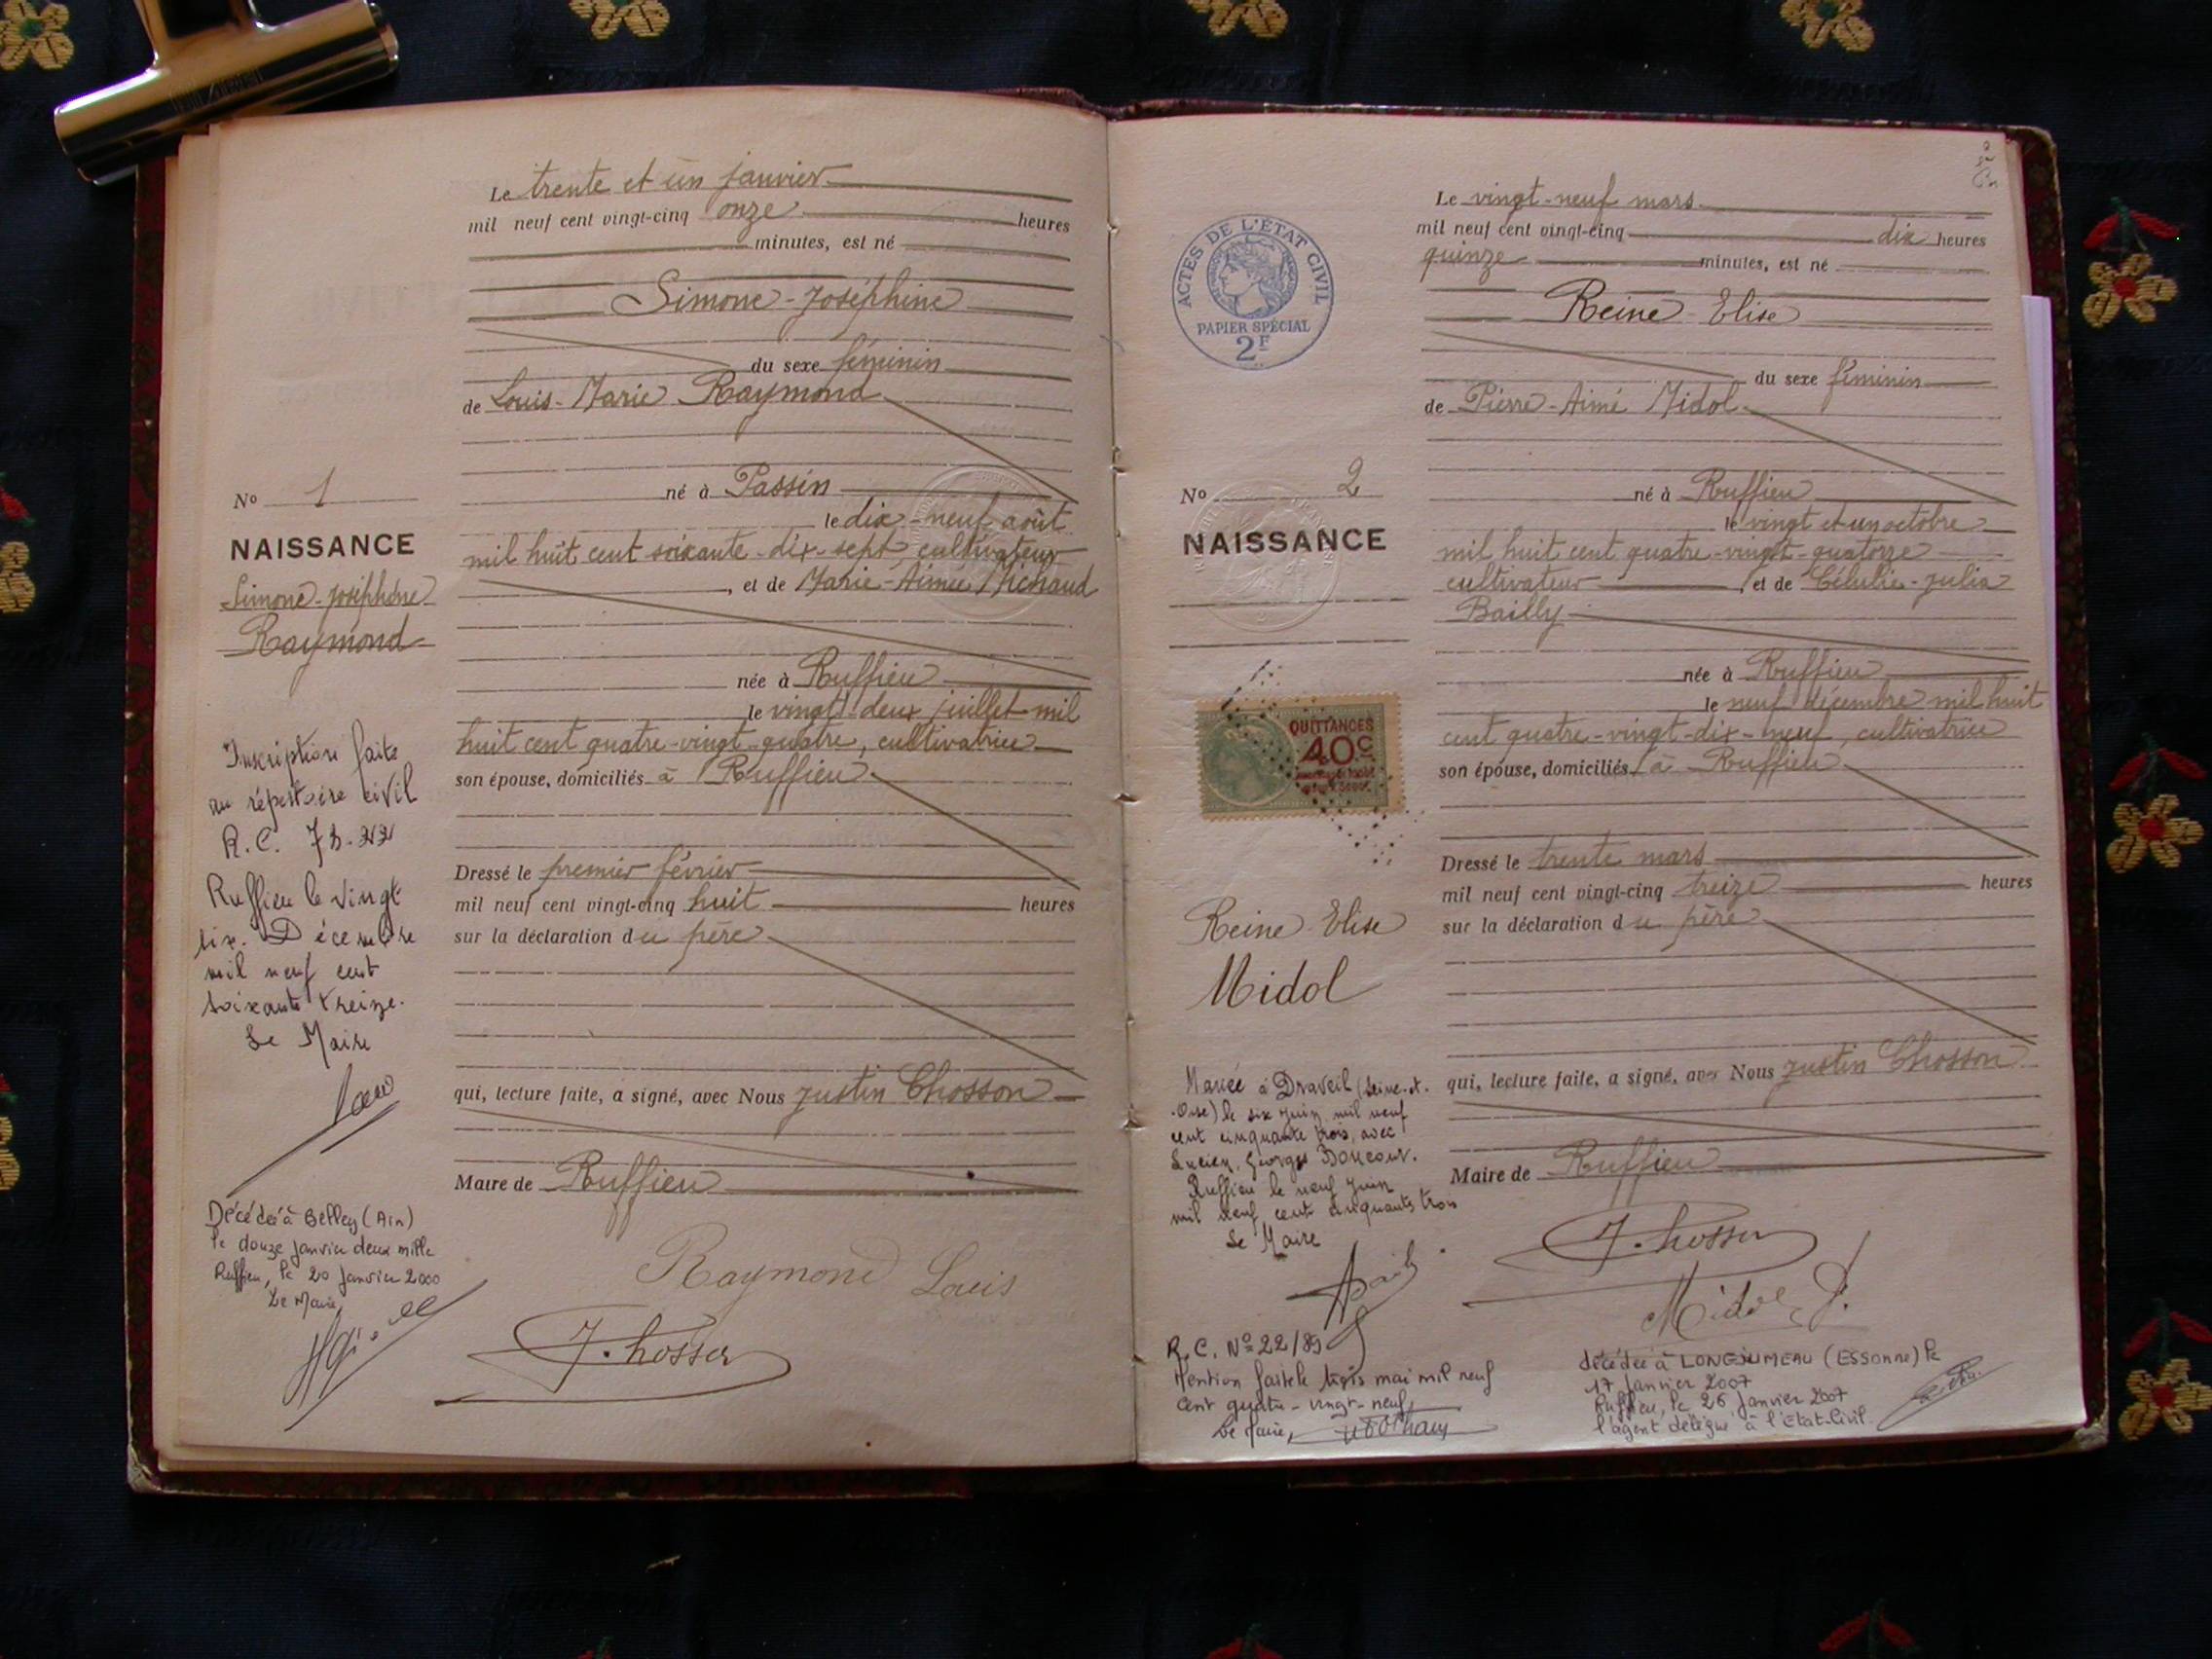 Le trente et un janvier
mil neuf cent vingt-cinq onze heures
minutes, est né
Simone-Joséphine
du sexe féminin
de Louis-Marie Raymond
né à Passin
le dix-neuf août
mil huit cent soixante-dix-sept, cultivateur
, et de Marie-Aimée
née à Ruffieu
le vingt-deux juillet mil
huit cent quatre-vingt-quatre, cultivatrice
son épouse, domiciliés à Ruffieu
Dressé le premier février
mil neuf cent vingt-cinq huit heures
sur la déclaration du père
qui, lecture faite, a signé, avec Nous Justin Chosson
Maire de Ruffieu
Raymond Louis
No 1
NAISSANCE
Simone-Joséphine
Raymond
Inscription faite
au répertoire civil
R.C.
Ruffieu le vingt
six Décembre
mil neuf cent
soixante treize.
Le Maire
Décédée à Belley (Ain)
le douze janvier deux mille
Ruffieu, le 20 janvier 2000
Le Maire,
Le vingt-neuf mars
mil neuf cent vingt-cinq dix heures
quinze minutes, est né
Reine Elise
du sexe féminin
de Pierre-Aimé Midol
né à Ruffieu
le vingt et un octobre
mil huit cent quatre-vingt-quatorze
cultivateur, et de Célulie-Julia
Bailly
née à Ruffieu
le neuf décembre mil huit
cent quatre-vingt-dix-neuf, cultivatrice
son épouse, domiciliés à Ruffieu
Dressé le trente mars
mil neuf cent vingt-cinq treize heures
sur la déclaration du père
qui, lecture faite, a signé, avec Nous Justin Chosson
Maire de Ruffieu
J. Chosson
Midol
ACTES DE L'ÉTAT CIVIL
PAPIER SPÉCIAL
2F
No 2
NAISSANCE
QUITTANCES
40c
Reine Elise
Midol
Mariée à Draveil (Seine-et-
Oise) le six juin mil neuf
cent cinquante trois, avec
Lucien, Georges
Ruffieu le neuf juin
mil neuf cent cinquante trois
Le Maire
R.C. No 22/89
Mention faite le trois mai mil neuf
cent quatre-vingt-neuf,
Le Maire,
décédée à LONGJUMEAU (ESSonne) le
17 janvier 2007
Ruffieu, le 26 janvier 2007
l'agent délégué à l'Etat-Civil